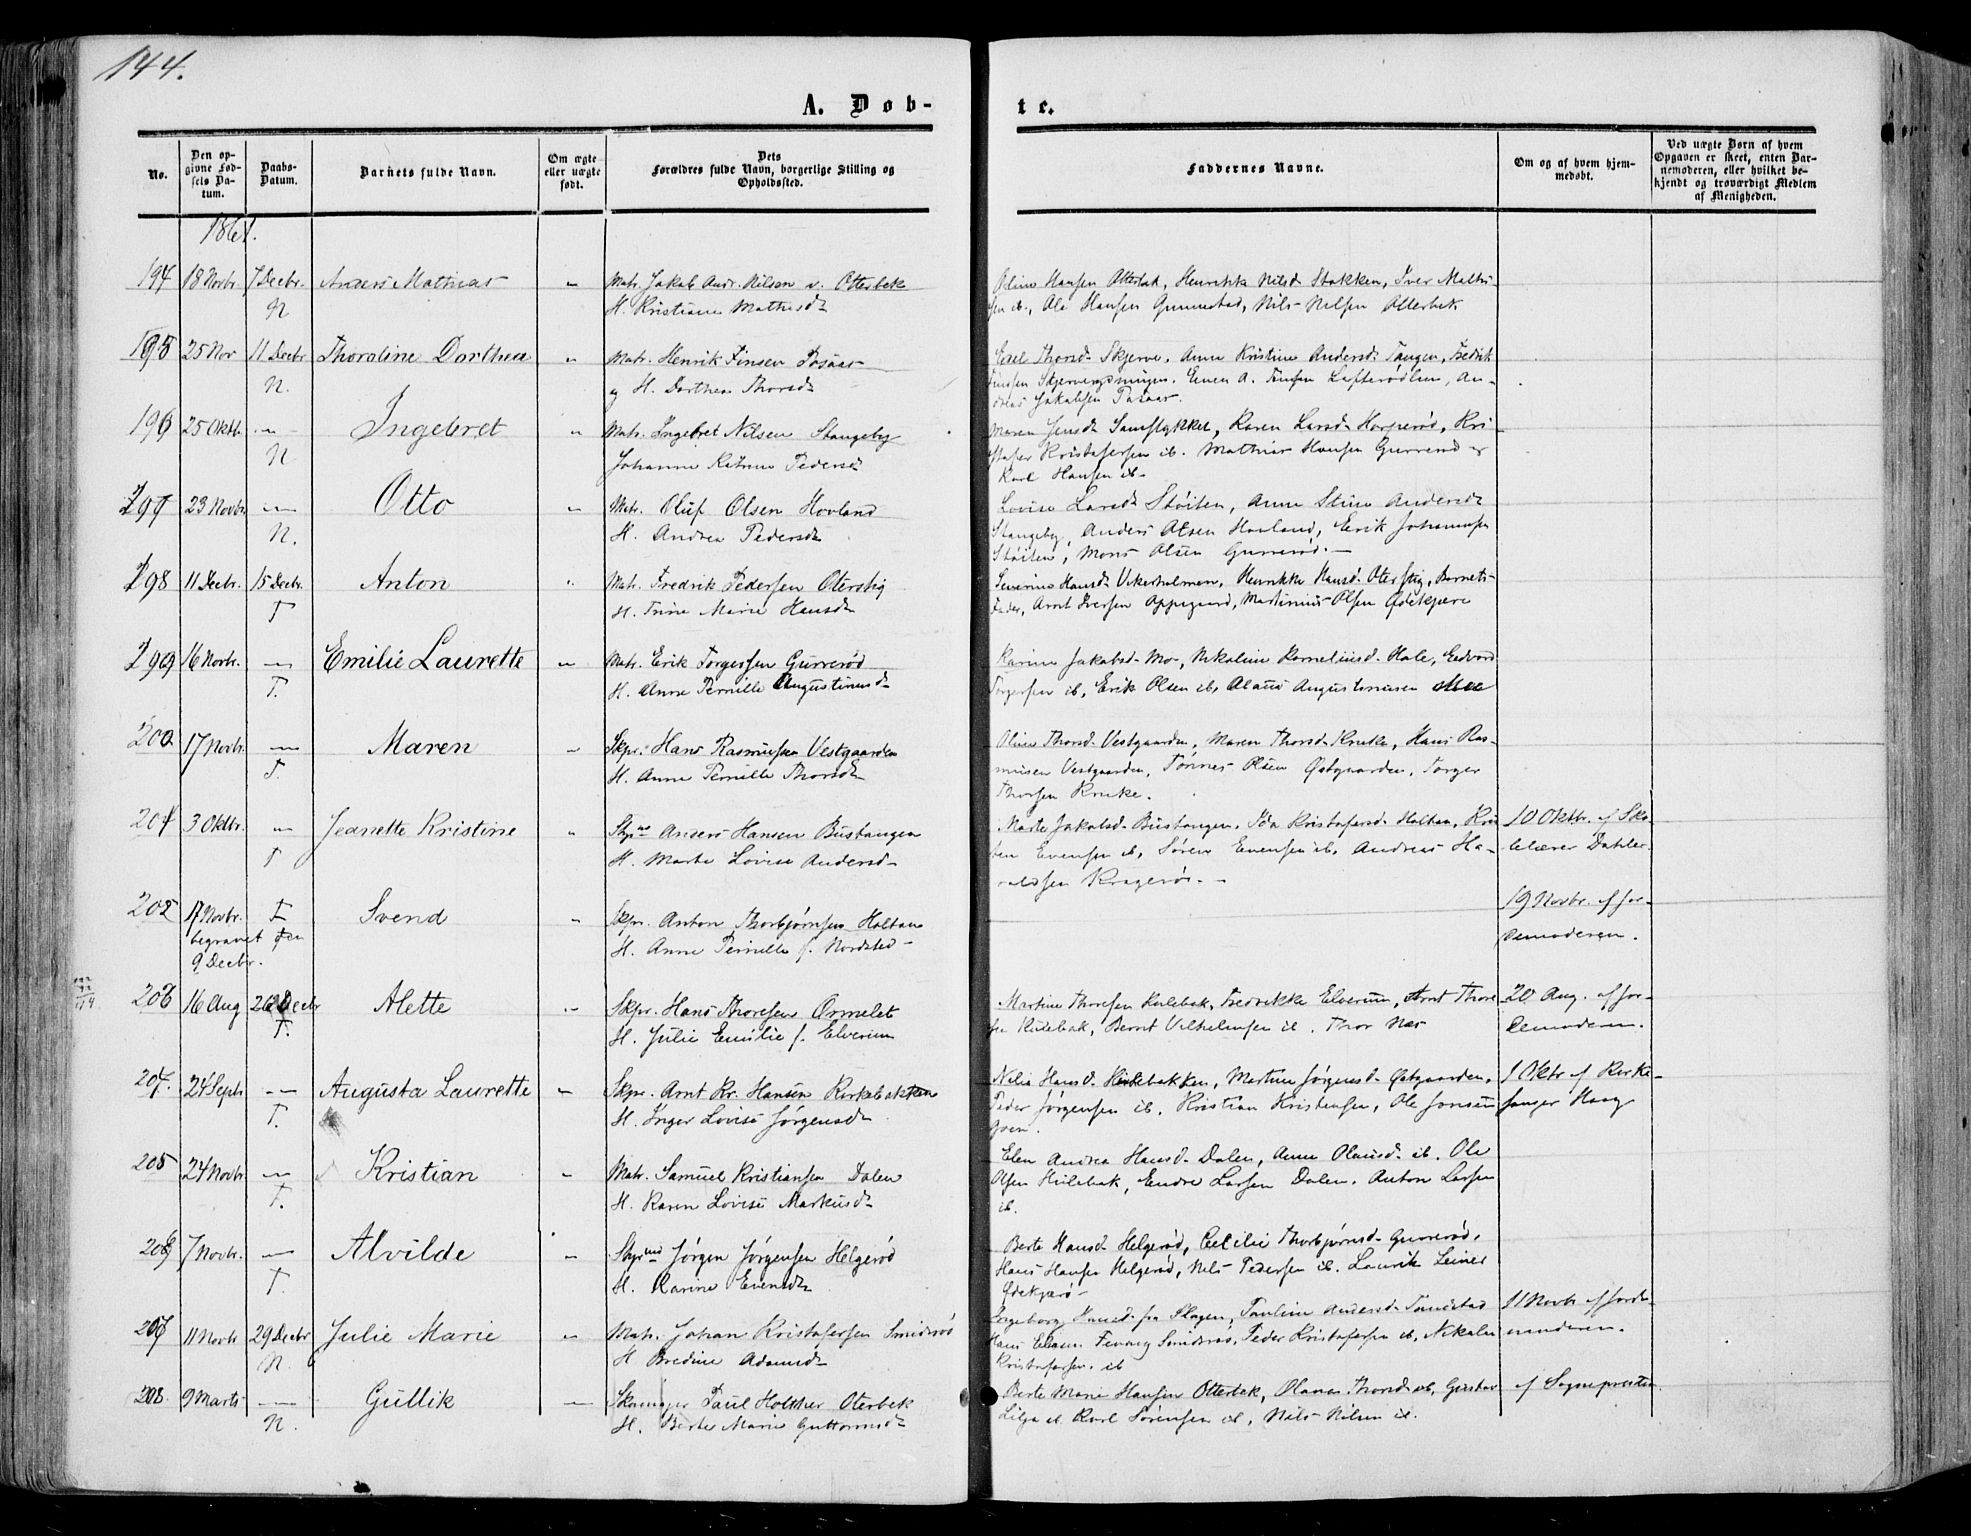 144.
A. Døb-
te.
No.
Den op-
givne Fød-
sels Da-
tum.
Daabs-
Datum.
Barnets fulde Navn.
Om ægte
eller uægte
født.
Dets
Forældres fulde Navn, borgerlige Stilling og
Opholdssted.
Faddernes Navne.
Om og af hvem hjem-
medøbt.
Ved uægte Børn af hvem
Opgaven er skeet, enten Bar-
nemoderen, eller hvilket be-
kjendt og troværdigt Medlem
af Menigheden.
1861.
194 18 Novbr. 7 Decbr. N Anders Mathias "
Matr. Jakob Andr. Nilsen v. Otterbek
H. Kristiane Mathisd.
Oline Hansen Otterbek, Henrikke Nilsd. Stokken, Iver Mathi-
sen ib., Ole Hansen Gunnestad, Nils Nilsen Otterbek
195 25 Nov 11 Decbr N. Thoraline Dorthea "
Matr. Henrik Finsen
og H. Dorthea Thorsd.
Thorsd. Skjerve, Anne Kristine Andersd. Tangen, Fredrik
Even A. An-
dreas Jakobsen
196 25 Oktb. " N Ingebret "
Matr. Ingebret Nilsen Stangeby
Johanne Pedersd.
Maren Jensd. Karen Larsd. Kri-
stafer Kristofersen ib. Mathias Hansen og
Karl Hansen ib.
197 23 Novbr. " N. Otto "
Matr. Oluf Olsen Hovland
H. Andrea Pedersd.
Lovise Larsd. Støiten, Anne Stine Andersd.
Stangeby, Anders Olsen Hovland, Erik Johannesen
Støiten, Mons Olsen Gurrerød.
198 11 Decbr. 15 Decbr. T Anton "
Matr. Fredrik Pedersen Oterstig
H. Trine Marie Hansd.
Severine Hansd. Henrikke Hansd. Oterstig, Barnets
Fader, Arnt Iversen Oppegaard, Martinius Olsen Ødekjære
199 16 Novbr. " T. Emilie Laurette "
Matr. Erik Torgersen Gurrerød
H. Anne Pernille Augustinusd.
Karine Jakobsd. Mo, Nikoline Korneliusd. Hole, Edvard
Torgersen ib, Erik Olsen ib, Olaus Augustinusen
200 17 Novbr. " T. Maren "
Skpr. Hans Rasmussen Vestgaarden
H. Anne Pernille Thorsd.
Oline Thorsd. Vestgaarden, Maren Thorsd. Kruke, Hans Ras-
musen Vestgaarden, Tønnes Olsen Østgaarden, Torger
Thorsen Kruke.
201 3 Oktbr. " T Jeanette Kristine "
Anders Hansen Bustangen
H. Marte Lovise Andersd.
Marte Jakobsd. Bustangen, Ida Kristofersd. Holtan, Kri-
sten Evensen ib, Søren Evensen ib, Andreas Ha-
raldsen Kragerøe.
10 Oktbr. af Sko-
lelærer Dahler.
202 17 Novbr. Svend "
begravet den
9 Decbr.
Skpr. Anton Thorbjørnsen Holtan
H. Anne Pernille f. Nordsted
19 Novbr. af Jor-
demoderen.
203 16 Aug 26 Decbr T. Alette "
Skpr. Hans Thoresen Ormelet
H. Julie Emilie f. Elverum
Martine Thoresen Kulebak, Fredrikke Elverum, Arnt Thore-
sen Kulebak, Bernt Vilhelmsen ib. Thor Næs
20 Aug. af Jor-
demoderen.
204. 24 Septb " T. Augusta Laurette "
Skpr. Arnt Kr. Hansen Kirkebakken
H. Inger Lovise Jørgensd.
Nilia Hansd. Kirkebakken, Martine Jørgensd. Østgaarden,
Peder Jørgensen ib. Kristian Kristensen, Ole Jensen
1 Oktbr af Kirke-
sanger Haag
205 24 Novbr " T. Kristian "
Matr. Samuel Kristiansen Dalen
H. Karen Lovise Markusd.
Elen Andrea Hansd. Dalen, Anne Olausd. ib. Ole
Olsen Kulebak, Endre Larsen Dalen, Anton Larsen
ib.
206 7 Novbr. " T. Alvilde "
Jørgen Jørgensen Helgerød
H. Karine Evensd.
Berte Hansd. Helgerød, Cecilie Thorbjørnsd. Gurrerød,
Hans Hansen Helgerød, Nils Pedersen ib. Laurits
Ødekjære
207 11 Novbr 29 Decbr N. Julie Marie "
Matr. Johan Kristofersen Smidsrød
H. Bredine Adamsd.
Ingeborg fra Skagen, Pauline Andersd.
Hans Smidsrød, Peder Kristofersen ib, Nikolai
Kristofersen ib
11 Novbr af Jorde-
moderen.
208. 9 Marts " N. Gullik "
Skomager Paul Holther Oterbek
H. Berte Marie Guttormsd.
Berte Marie Hansen Otterbek, Olava Thorsd. ib, Gustav
Lilja ib. Karl Sørensen ib, Nils Nilsen ib.
af Sognepresten